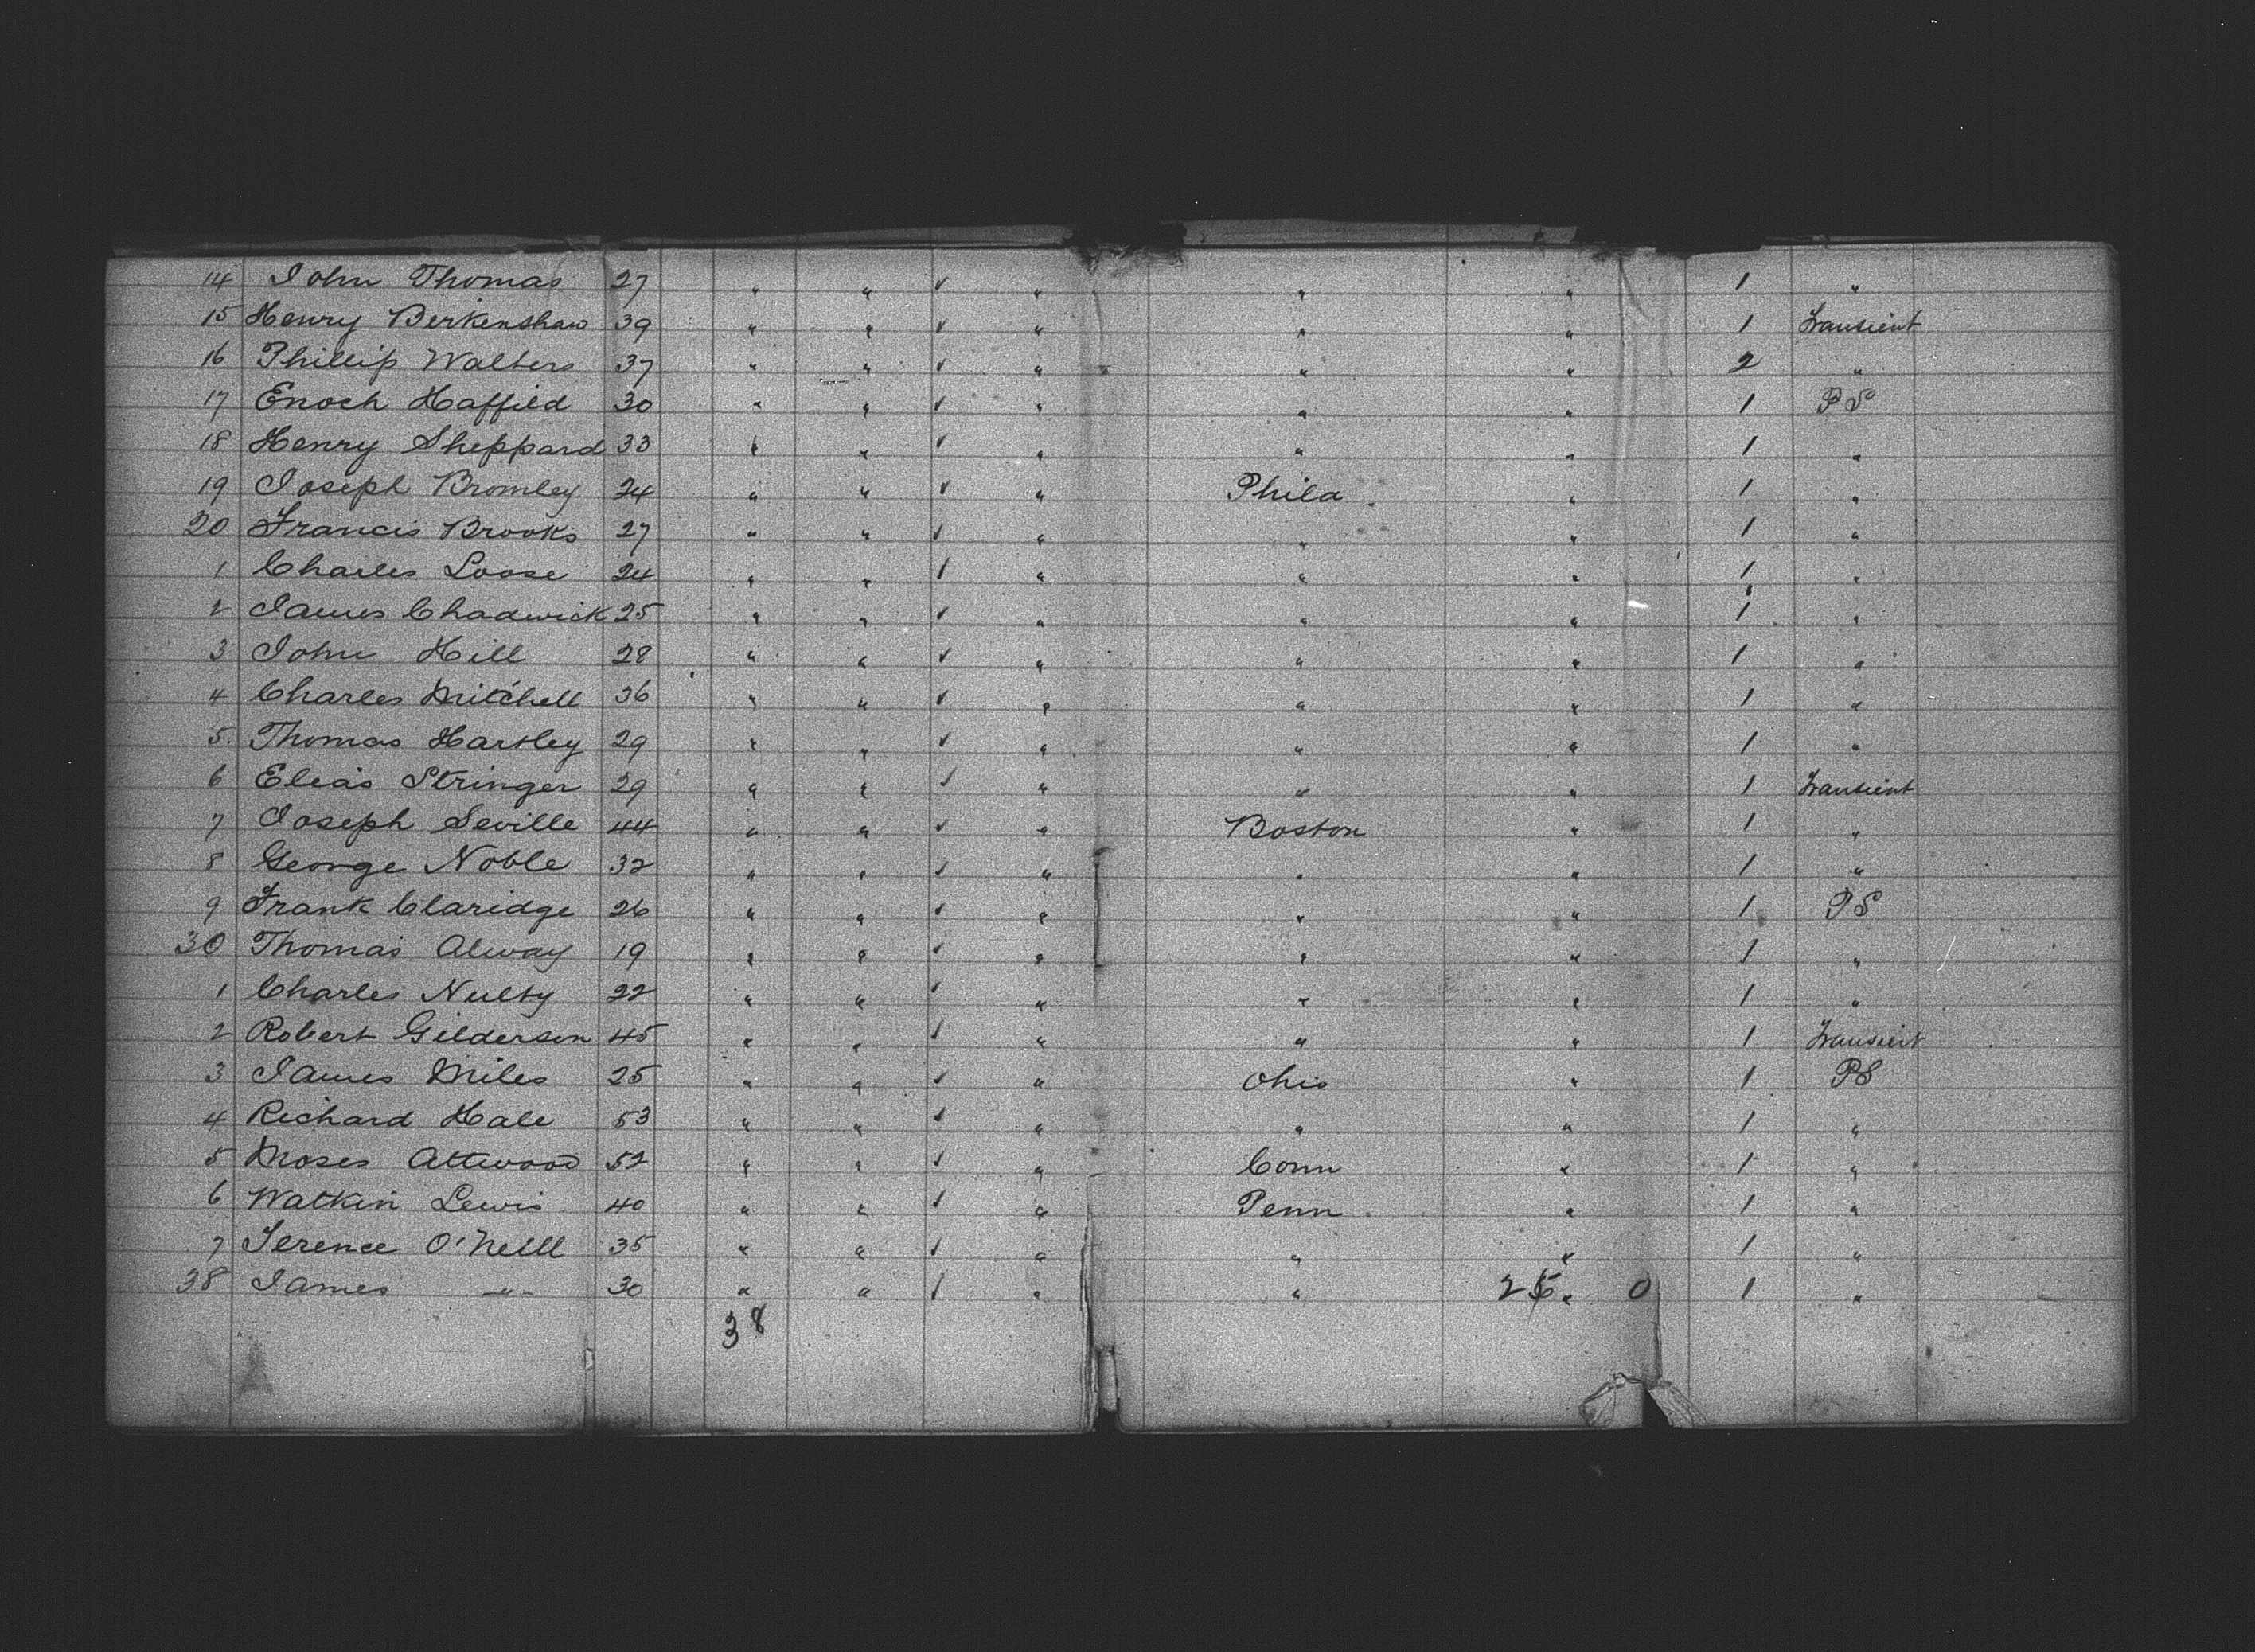 14 John Thomas 27 " " ✓ " " " 1 "
15 Henry Berkenshaw 39 " " ✓ " " " 1 Transient
16 Phillip Walters 37 " " ✓ " " " 2 "
17 Enoch Haffield 30 " " ✓ " " " 1 P S
18 Henry Sheppard 33 " " ✓ " " " 1 "
19 Joseph Bromley 24 " " ✓ " Phila " 1 "
20 Francis Brooks 27 " " ✓ " " " 1 "
1 Charles Loose 24 " " ✓ " " " 1 "
2 James Chadwick 25 " " ✓ " " " 1 "
3 John Hill 28 " " ✓ " " " 1 "
4 Charles Mitchell 36 " " ✓ " " " 1 "
5 Thomas Hartley 29 " " ✓ " " " 1 "
6 Elias Stringer 29 " " ✓ " " " 1 Transient
7 Joseph Seville 44 " " ✓ " Boston " 1 "
8 George Noble 32 " " ✓ " " " 1 "
9 Frank Claridge 26 " " ✓ " " " 1 P S
30 Thomas Alway 19 " " ✓ " " " 1 "
1 Charles Nulty 22 " " ✓ " " " 1 "
2 Robert Gilderson 45 " " ✓ " " " 1 Transient
3 James Miles 25 " " ✓ " Ohio " 1 PS
4 Richard Hale 53 " " ✓ " " " 1 "
5 Moses Attwood 52 " " ✓ " Conn " 1 "
6 Watkin Lewis 40 " " ✓ " Penn " 1 "
7 Terence O'Neill 35 " " ✓ " " " 1 "
38 James " 30 " " ✓ " " " 0 1 "
38